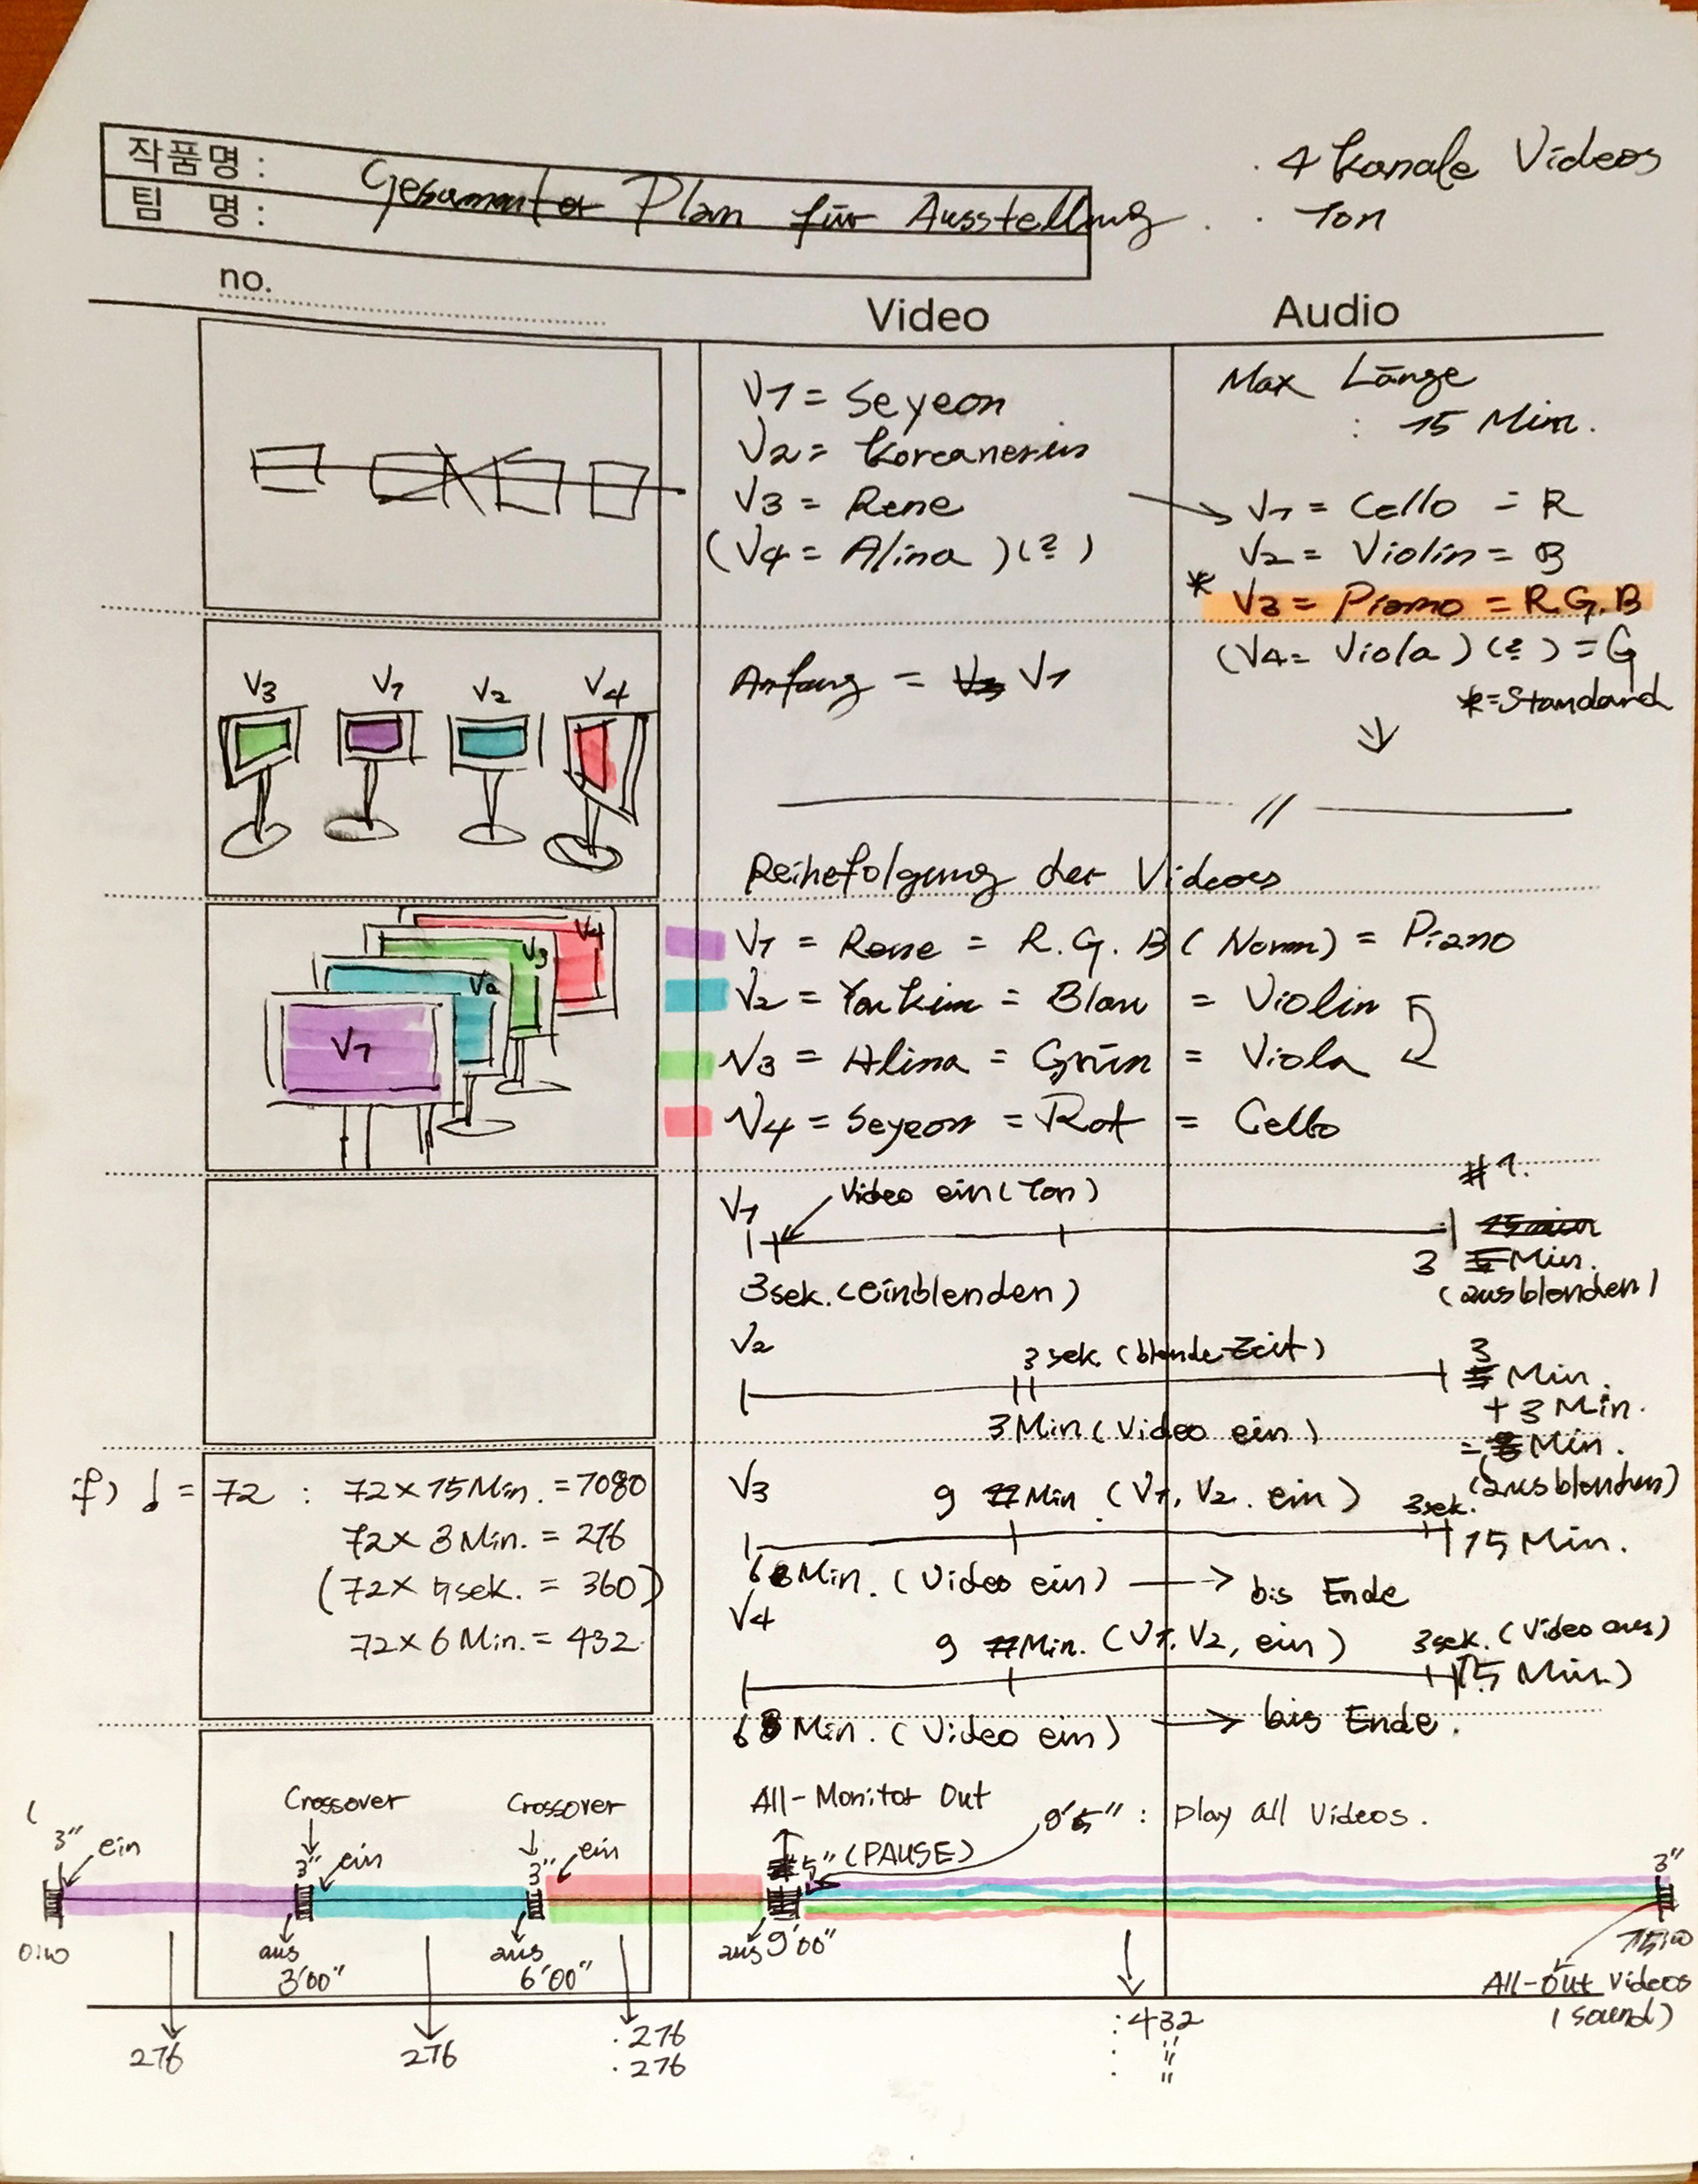 작품명 :
팀 명 :
Gesammter Plan für Ausstellung .
· 4 Kanale Videos
· Ton
no.
Video
Audio
V1 = Seyeon
V2 = Koreanerin
V3 = Rene
(V4 = Alina ) (?)
Max Länge
: 15 Min.
V1 = Cello = R
V2 = Violin = B
* V3 = Piano = R.G.B
(V4 = Viola ) (?) = G
*=Standard
V3 V1 V2 V4
Anfang = V1
Reihefolgung der Videos
V1 = Rene = R.G.B (Norm) = Piano
V2 = = Blau = Violin
V3 = Alina = Grün = Viola
V4 = Seyeon = Rot = Cello
V4
V3
V2
V1
#1.
V1 Video ein (Ton)
3 Min.
3sek. (einblenden)
(ausblenden)
V2
3 sek. (blende-Zeit)
3 Min.
+ 3 Min.
3 Min (Video ein)
= 6 Min.
(ausblenden)
if) ♩ = 72 : 72 × 15 Min. = 7080
72 × 3 Min. = 276
(72 × 5 sek. = 360)
72 × 6 Min. = 432
V3
9 Min (V1, V2. ein)
3sek.
15 Min.
6 Min. (Video ein) → bis Ende
V4
9 Min. (V1, V2, ein)
3sek. (Video aus)
15 Min)
6 Min. (Video ein) → bis Ende .
Crossover
Crossover
All-Monitor Out
9'5" : play all Videos.
3" ein
3" ein
3" ein
5" (PAUSE)
3"
0:00
aus
3'00"
aus
6'00"
aus 9'00"
15:00
All-Out Videos
(sound)
276
276
· 276
· 276
: 432
: "
· "